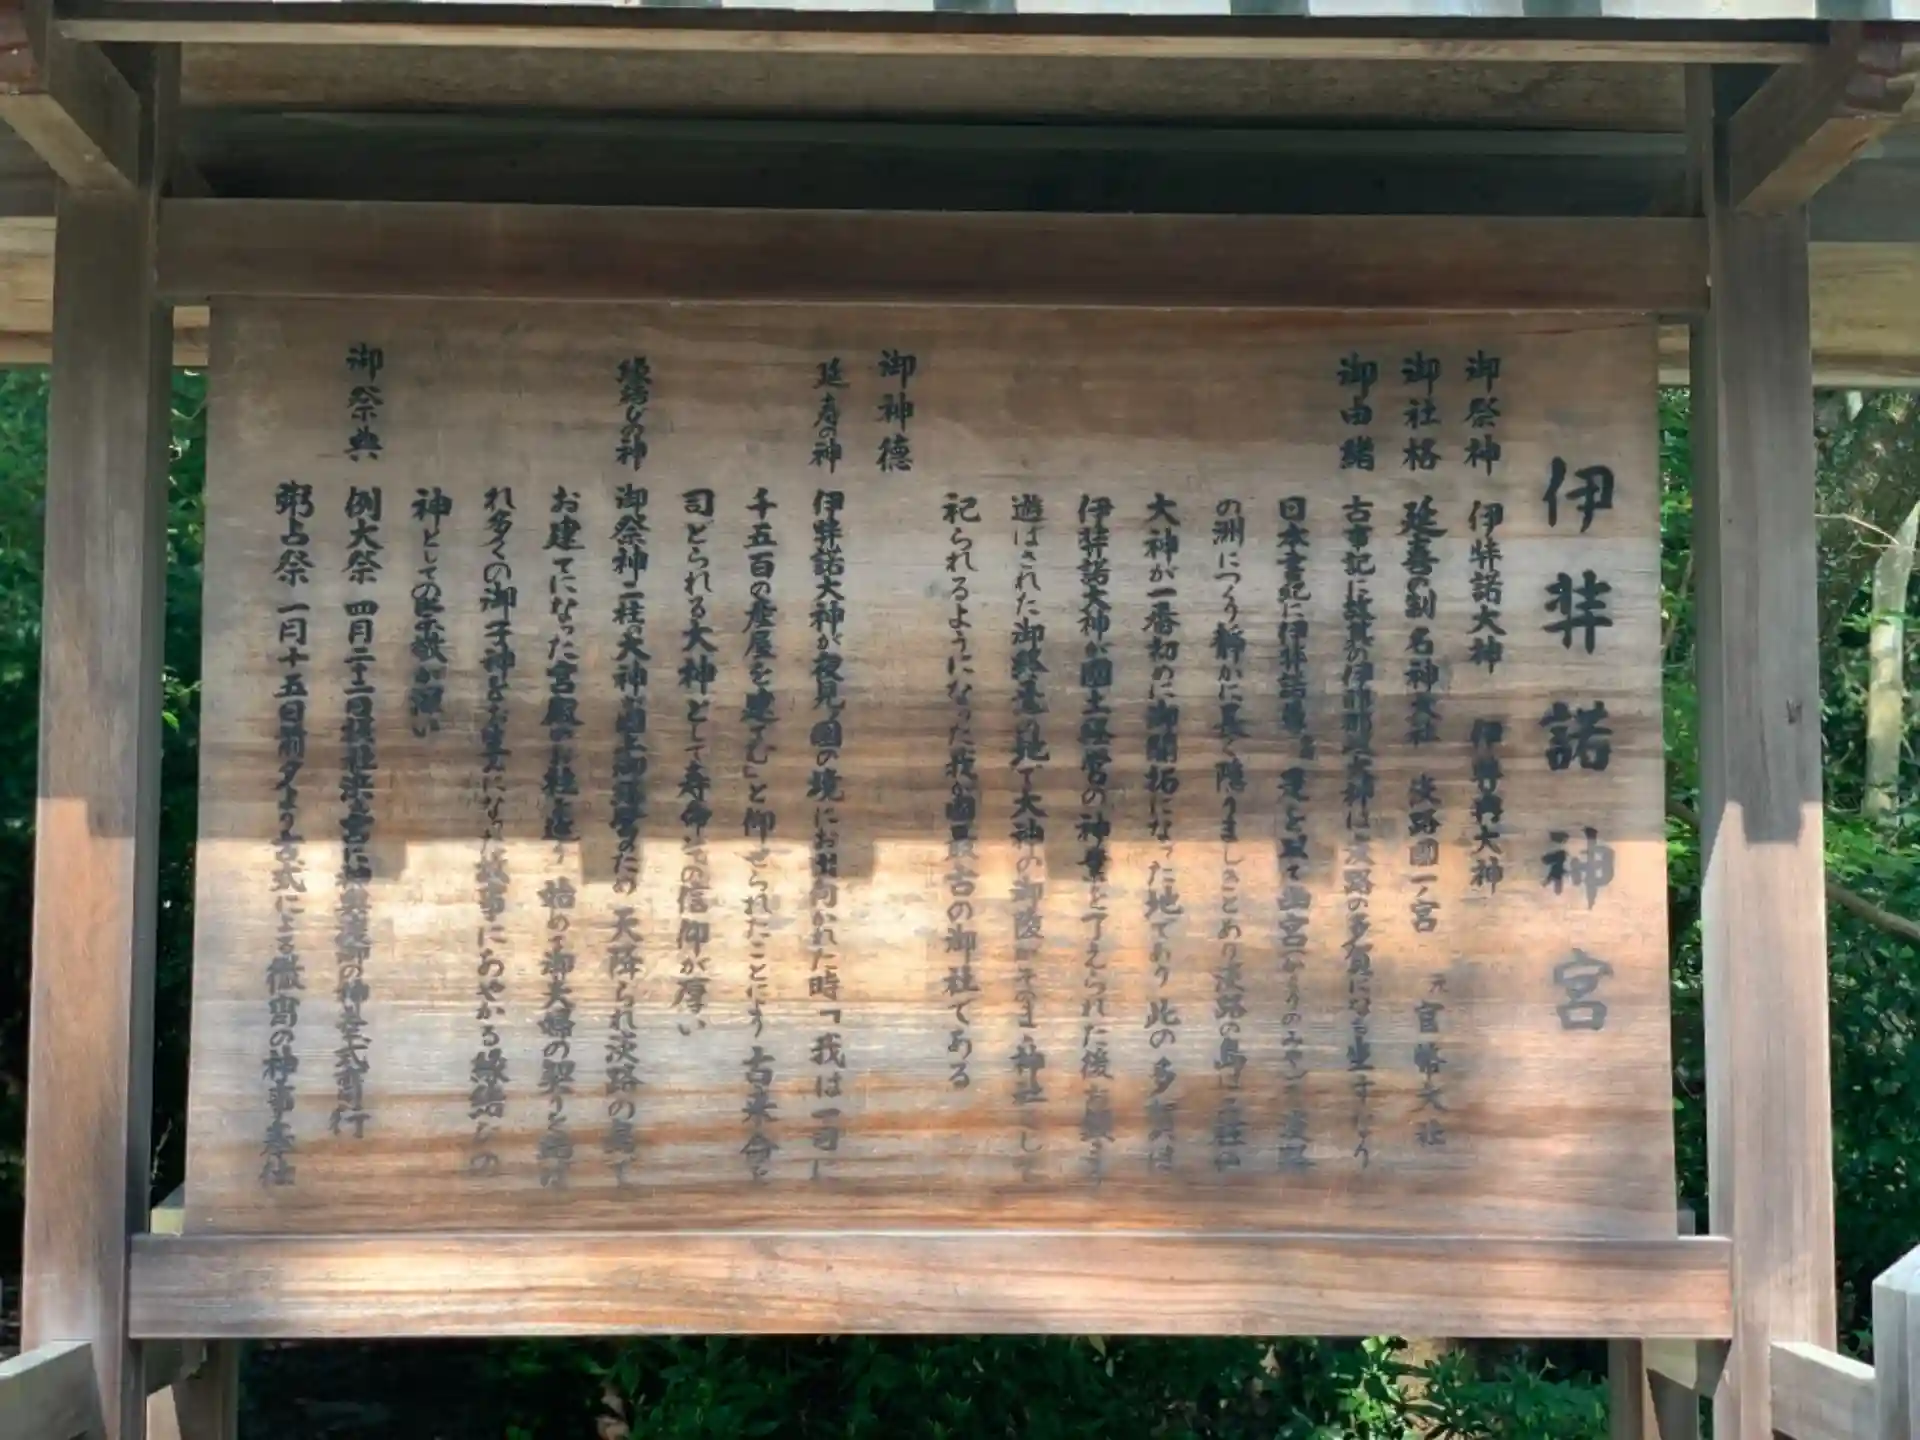 伊弉諾神宮
御祭神 伊弉諾大神 伊弉冉大神
御社格 延喜の制 名神大社 淡路國一宮 元 官幣大社
御由緒 古事記に故其の伊耶那岐大神は淡路の多賀になも坐すなり
日本書紀に伊弉諾尊 是を以て幽宮(かくりのみや)を淡路
の洲につくり静かに長く隠りましきとあり淡路の島は二柱の
大神が一番初めに御開拓になった地であり 此の多賀は
伊弉諾大神が國土経営の神業を了えられた後 お鎮まり
遊ばされた御終焉の地で大神の御陵がそのまま神社として
祀られるようになった我が國最古の御社である
御神徳
延寿の神 伊弉諾大神が夜見の國の境にお出向かれた時「我は一日に
千五百の産屋を建てむ」と仰せられたことにより 古来命を
司どられる大神として寿命の信仰が厚い
縁結びの神 御祭神二柱の大神が國土御経営のため 天降られ淡路の島で
お建てになった宮殿のお柱を巡り 始めて御夫婦の契りを結ば
れ多くの御子神をお生みになった故事にあやかる縁結びの
神としての崇敬が深い
御祭典 例大祭 四月二十二日摂社浜の宮に神輿渡御の神幸式斎行
粥占祭 一月十五日前夕より古式による徹宵の神事奉仕